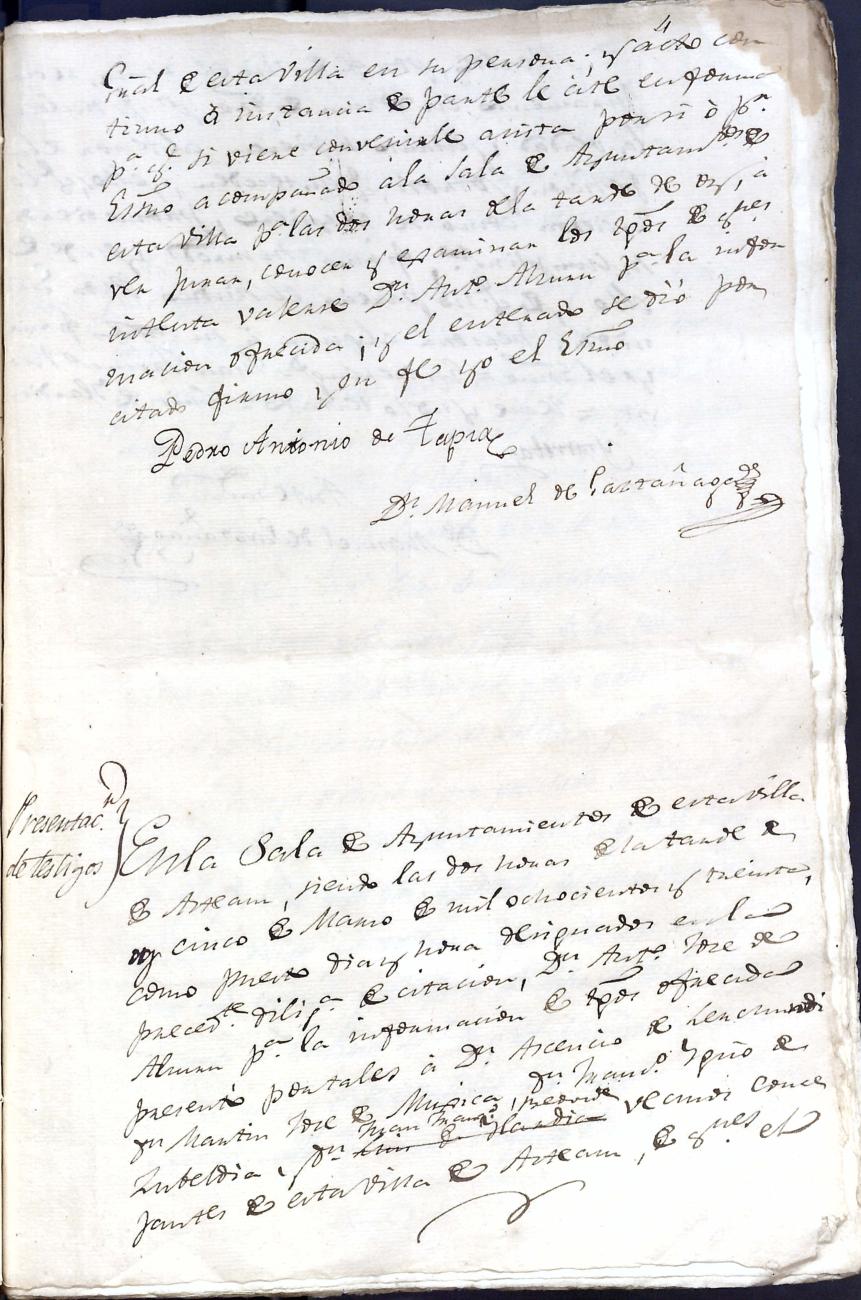 4
Gral de esta Villa en su persona; y acto con
tinuo á instancia de parte le cité en forma
p.ª q.e si viene conveniente asista por sí ó p.r
Essno acompañado á la Sala de Ayuntam.tos de
esta Villa p.ª las dos horas de la tarde de oy, á
ver jurar, conocer y examinar los tgos de q.nes
intenta valerse D.n Ant.o Alzuru p.ª la infor
macion ofrecida; y el enterado se dió por
citado firmó y en fe yo el Essno
Pedro Antonio de Tapia
D.n Manuel de Gastañaga
Presentac.n
de testigos
En la Sala de Ayuntamientos de esta Villa
de Asteasu, siendo las dos horas de la tarde de
oy cinco de Marzo de mil ochocientos y treinta,
como puesto dia y hora designados en la
preced.te dilig.a de citacion, D.n Ant.o Jose de
Alzuru p.ª la informacion de tgos ofrecida
presentó por tales á D.n Ascencio de
D.n Martin Jose de Muxica, D.n Fran.co Ygn.o de
Zubeldia, y D.n Luis de Ilardia Juan Fran.co vecinos conce
jantes de esta Villa de Asteasu, de q.nes el